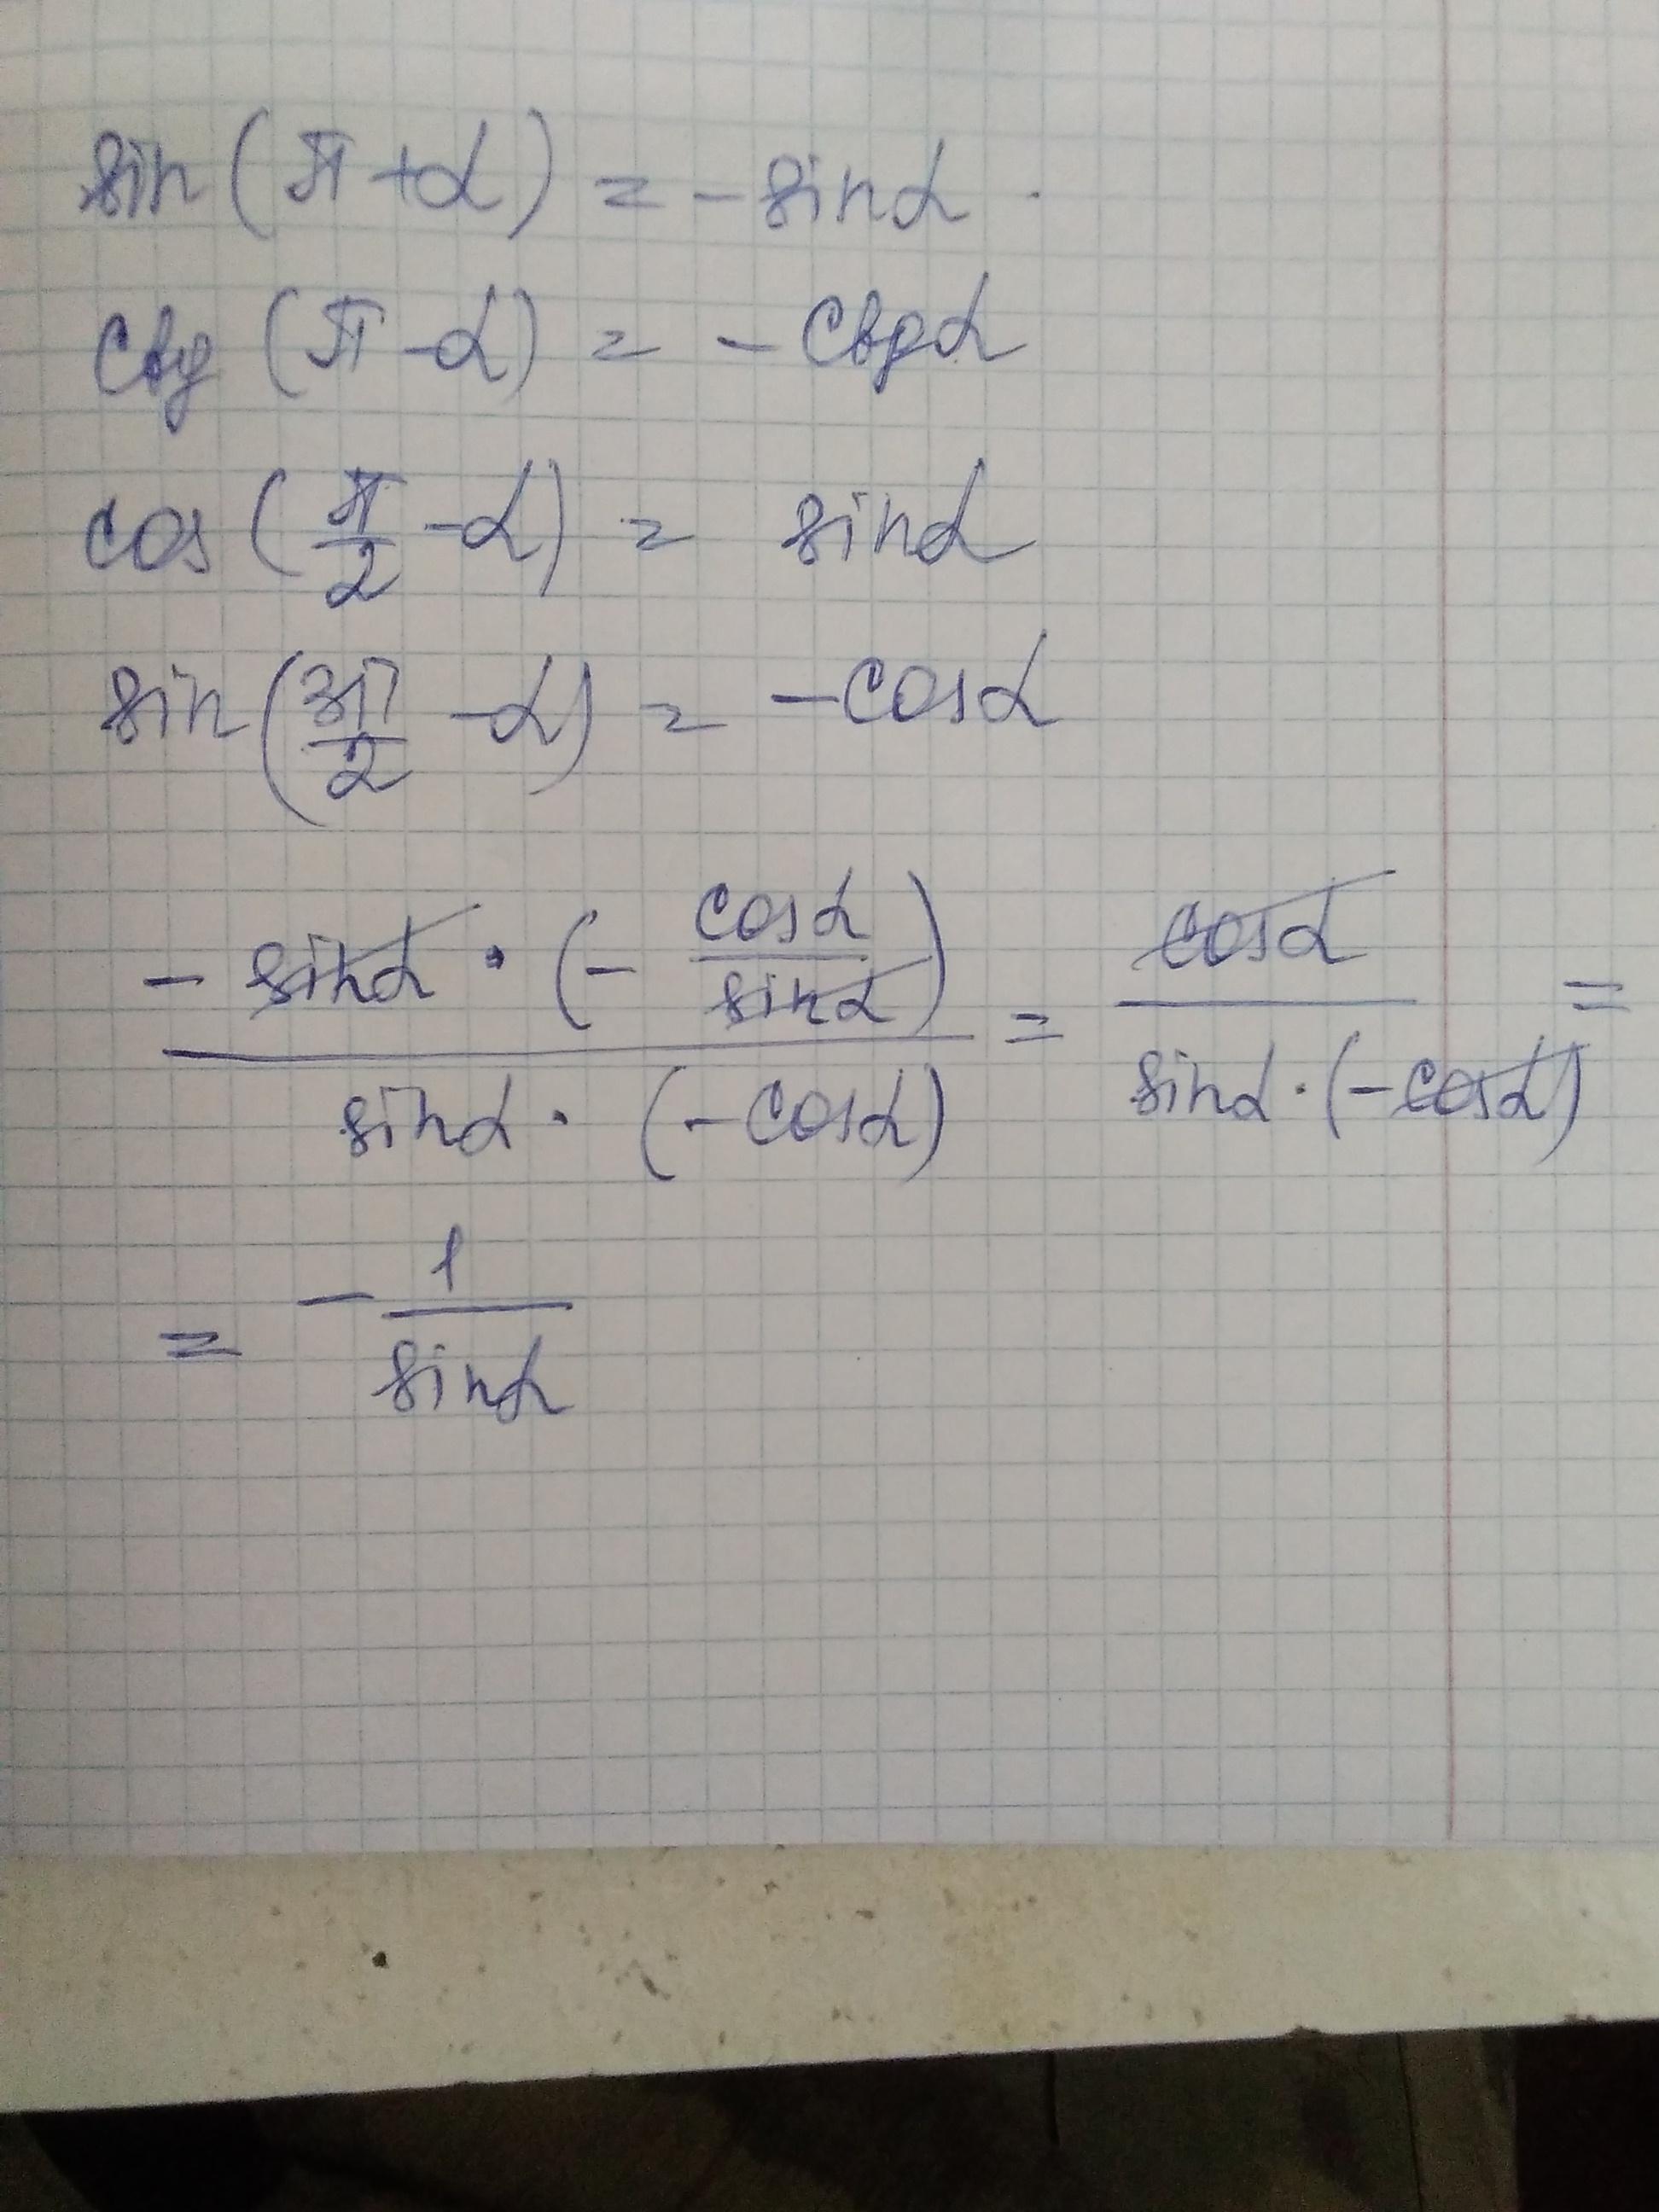 sin(π+α) = -sinα.
ctg(π-α) = -ctgα
cos(π/2 -α) = sinα
sin(3π/2 -α) = -cosα
(-sinα · (-cosα/sinα))/(sinα · (-cosα)) = cosα/(sinα·(-cosα)) =
= -1/sinα